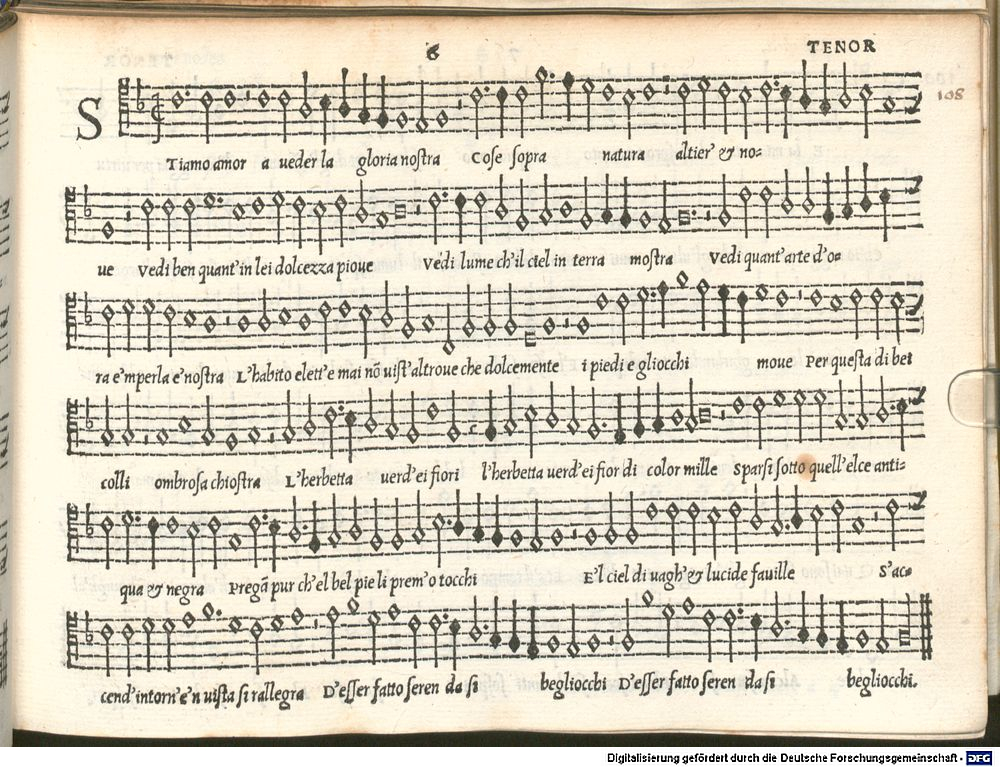 6
TENOR
108
S
Tiamo amor a ueder la gloria nostra Cose sopra natura altier' & no-
ue Vedi ben quant'in lei dolcezza pioue Vedi lume ch'il ciel in terra mostra Vedi quant'arte d'o-
ra e'mperla e'nostra L'habito elett'e mai nõ uist'altroue che dolcemente i piedi e gliocchi moue Per questa di bei
colli ombrosa chiostra L'herbetta uerd'ei fiori l'herbetta uerd'ei fior di color mille Sparsi sotto quell'elce anti-
qua & negra Pregã pur ch'el bel pie li prem'o tocchi E'l ciel di uagh'& lucide fauille S'ac-
cend'intorn'e'n uista si rallegra D'esser fatto seren da si begliocchi D'esser fatto seren da si begliocchi.
Digitalisierung gefördert durch die Deutsche Forschungsgemeinschaft - DFG